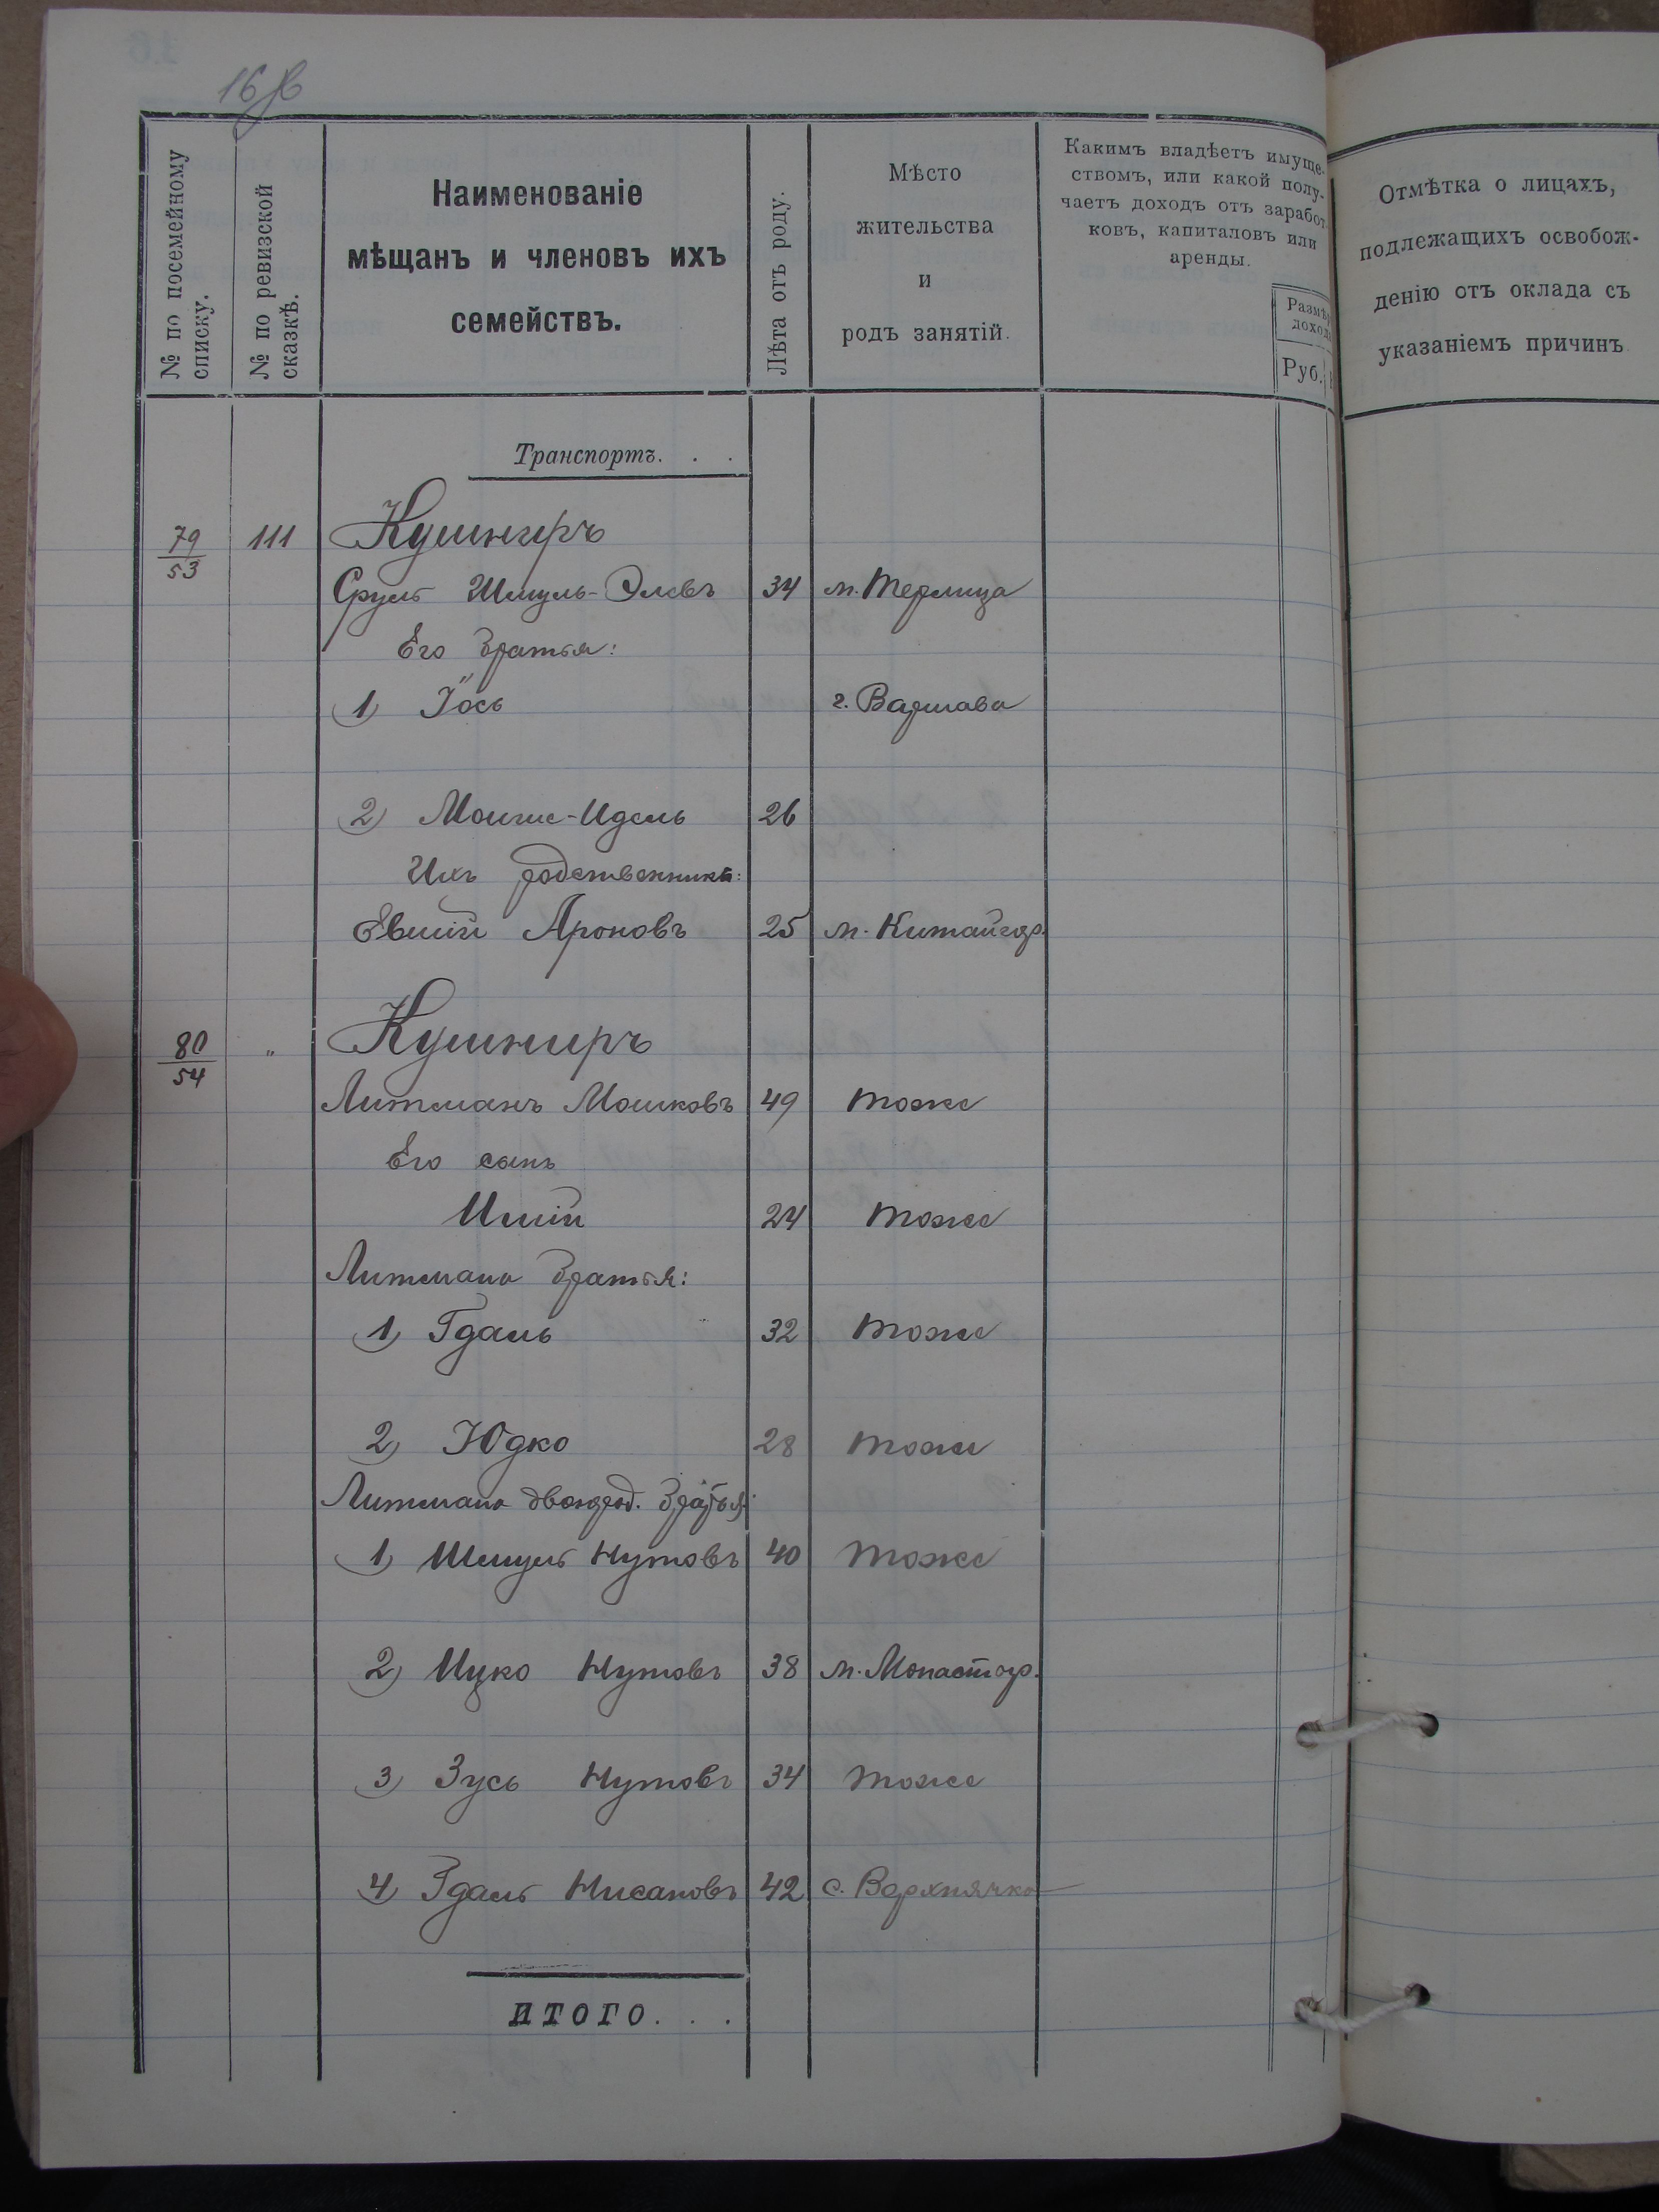 № по посемейному
списку.
№ по ревизской
сказкѣ.
Наименованіе
мѣщанъ и членовъ ихъ
семействъ.
Лѣта отъ роду.
Мѣсто
жительства
и
родъ занятій.
Какимъ владѣетъ имуще-
ствомъ, или какой полу-
чаетъ доходъ отъ заработ-
ковъ, капиталовъ или
аренды.
Руб.
Отмѣтка о лицахъ,
подлежащихъ освобож-
денію отъ оклада съ
указаніемъ причинъ
Транспортъ. . .
79/53 111 Кушниръ
Сруль Шмуль-Элевъ 34 м. Терлица
Его братья:
1) Іось г. Варшава
2) Мошко-Идель 26
Ихъ родственникъ:
Евшій Ароновъ 25 м. Китайгор.
80/54 " Кушниръ
Литманъ Мошковъ 49 тоже
Его сынъ
24 тоже
Литмана братья:
1) Гдаль 32 тоже
2) Юдко 28 тоже
Литмана двоюрод. братья:
1) Шмуль Нутовъ 40 тоже
2) Ицко Нутовъ 38 м. Монастыр.
3) Зусь Нутовъ 34 тоже
4) Гдаль Нисановъ 42 с. Верхнячка
ИТОГО. . .